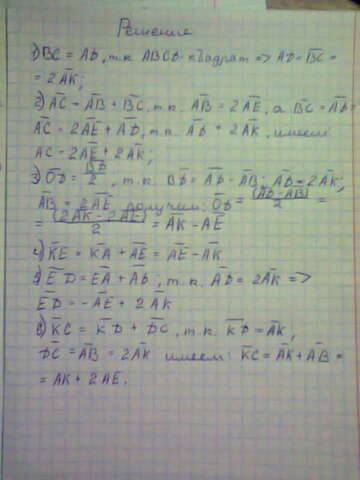 Решение
1) BC = AD, т.к. ABCD-квадрат => AD = B̅C̅ =
= 2A̅K̅;
2) A̅C̅ = A̅B̅ + B̅C̅, т.к. A̅B̅ = 2A̅E̅, а B̅C̅ = A̅D̅ =
A̅C̅ = 2A̅E̅ + A̅D̅, т.к. A̅D̅ = 2A̅K̅, имеем:
AC = 2A̅E̅ + 2A̅K̅;
3) O̅D̅ = B̅D̅/2, т.к. B̅D̅ = A̅D̅ - A̅B̅; A̅D̅ = 2A̅K̅,
A̅B̅ = 2A̅E̅ получим: O̅D̅ = (A̅D̅ - A̅B̅)/2 =
= (2A̅K̅ - 2A̅E̅)/2 = A̅K̅ - A̅E̅
4) K̅E̅ = K̅A̅ + A̅E̅ = A̅E̅ - A̅K̅
5) E̅D̅ = E̅A̅ + A̅D̅, т.к. A̅D̅ = 2A̅K̅ =>
E̅D̅ = -A̅E̅ + 2A̅K̅
6) K̅C̅ = K̅D̅ + D̅C̅, т.к. K̅D̅ = A̅K̅,
D̅C̅ = A̅B̅ = 2A̅K̅ имеем: K̅C̅ = A̅K̅ + A̅B̅ =
= AK + 2AE.